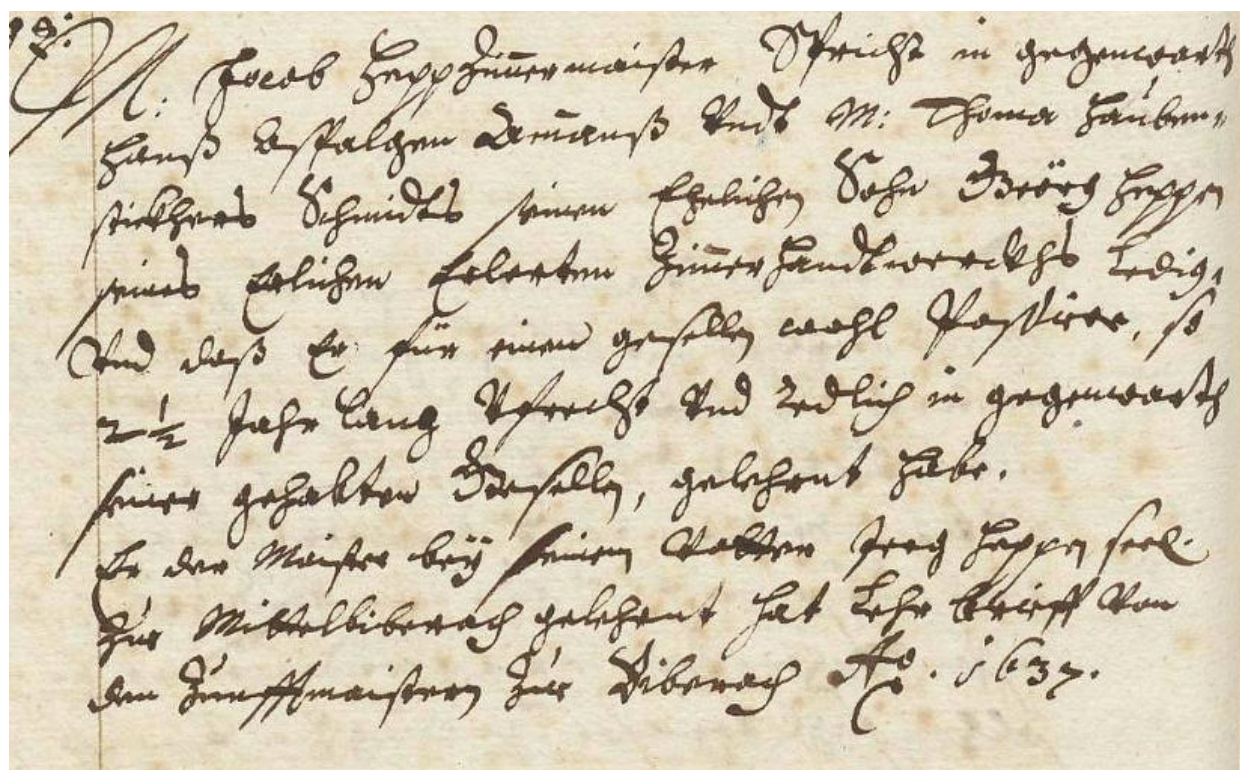 12.
M: Jacob Hepp Zimermaister Spricht in gegenwarth
Hanß Aspalgen Amanß Vndt M: Thoma Hauben-
stickhers Schmidts seinen Ehelichen Sohn Geörg Heppen
seines Erlichen Erlerten Zimerhandtwerckhs Ledig,
Vnd daß Er für einen gesellen wohl Passiere, so
2 1/2 Jahr lang Vfrecht Vnd Redlich in gegenwarth
seiner gehabten Gesellen, gelehrnt habe.
Er der Maister beÿ seinem Vatter Jerg Heppen seel.
Zue Mittelbiberach gelehrnt hat Lehr brieff Von
den Zunfftmaistern Zue Biberach Ao. 1637.